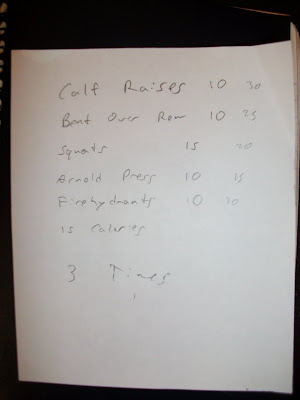 Calf Raises 10 30
Bent Over Row 10 25
Squats 15 20
Arnold Press 10 15
Firehydrants 10 20
15 Calories
3 Times